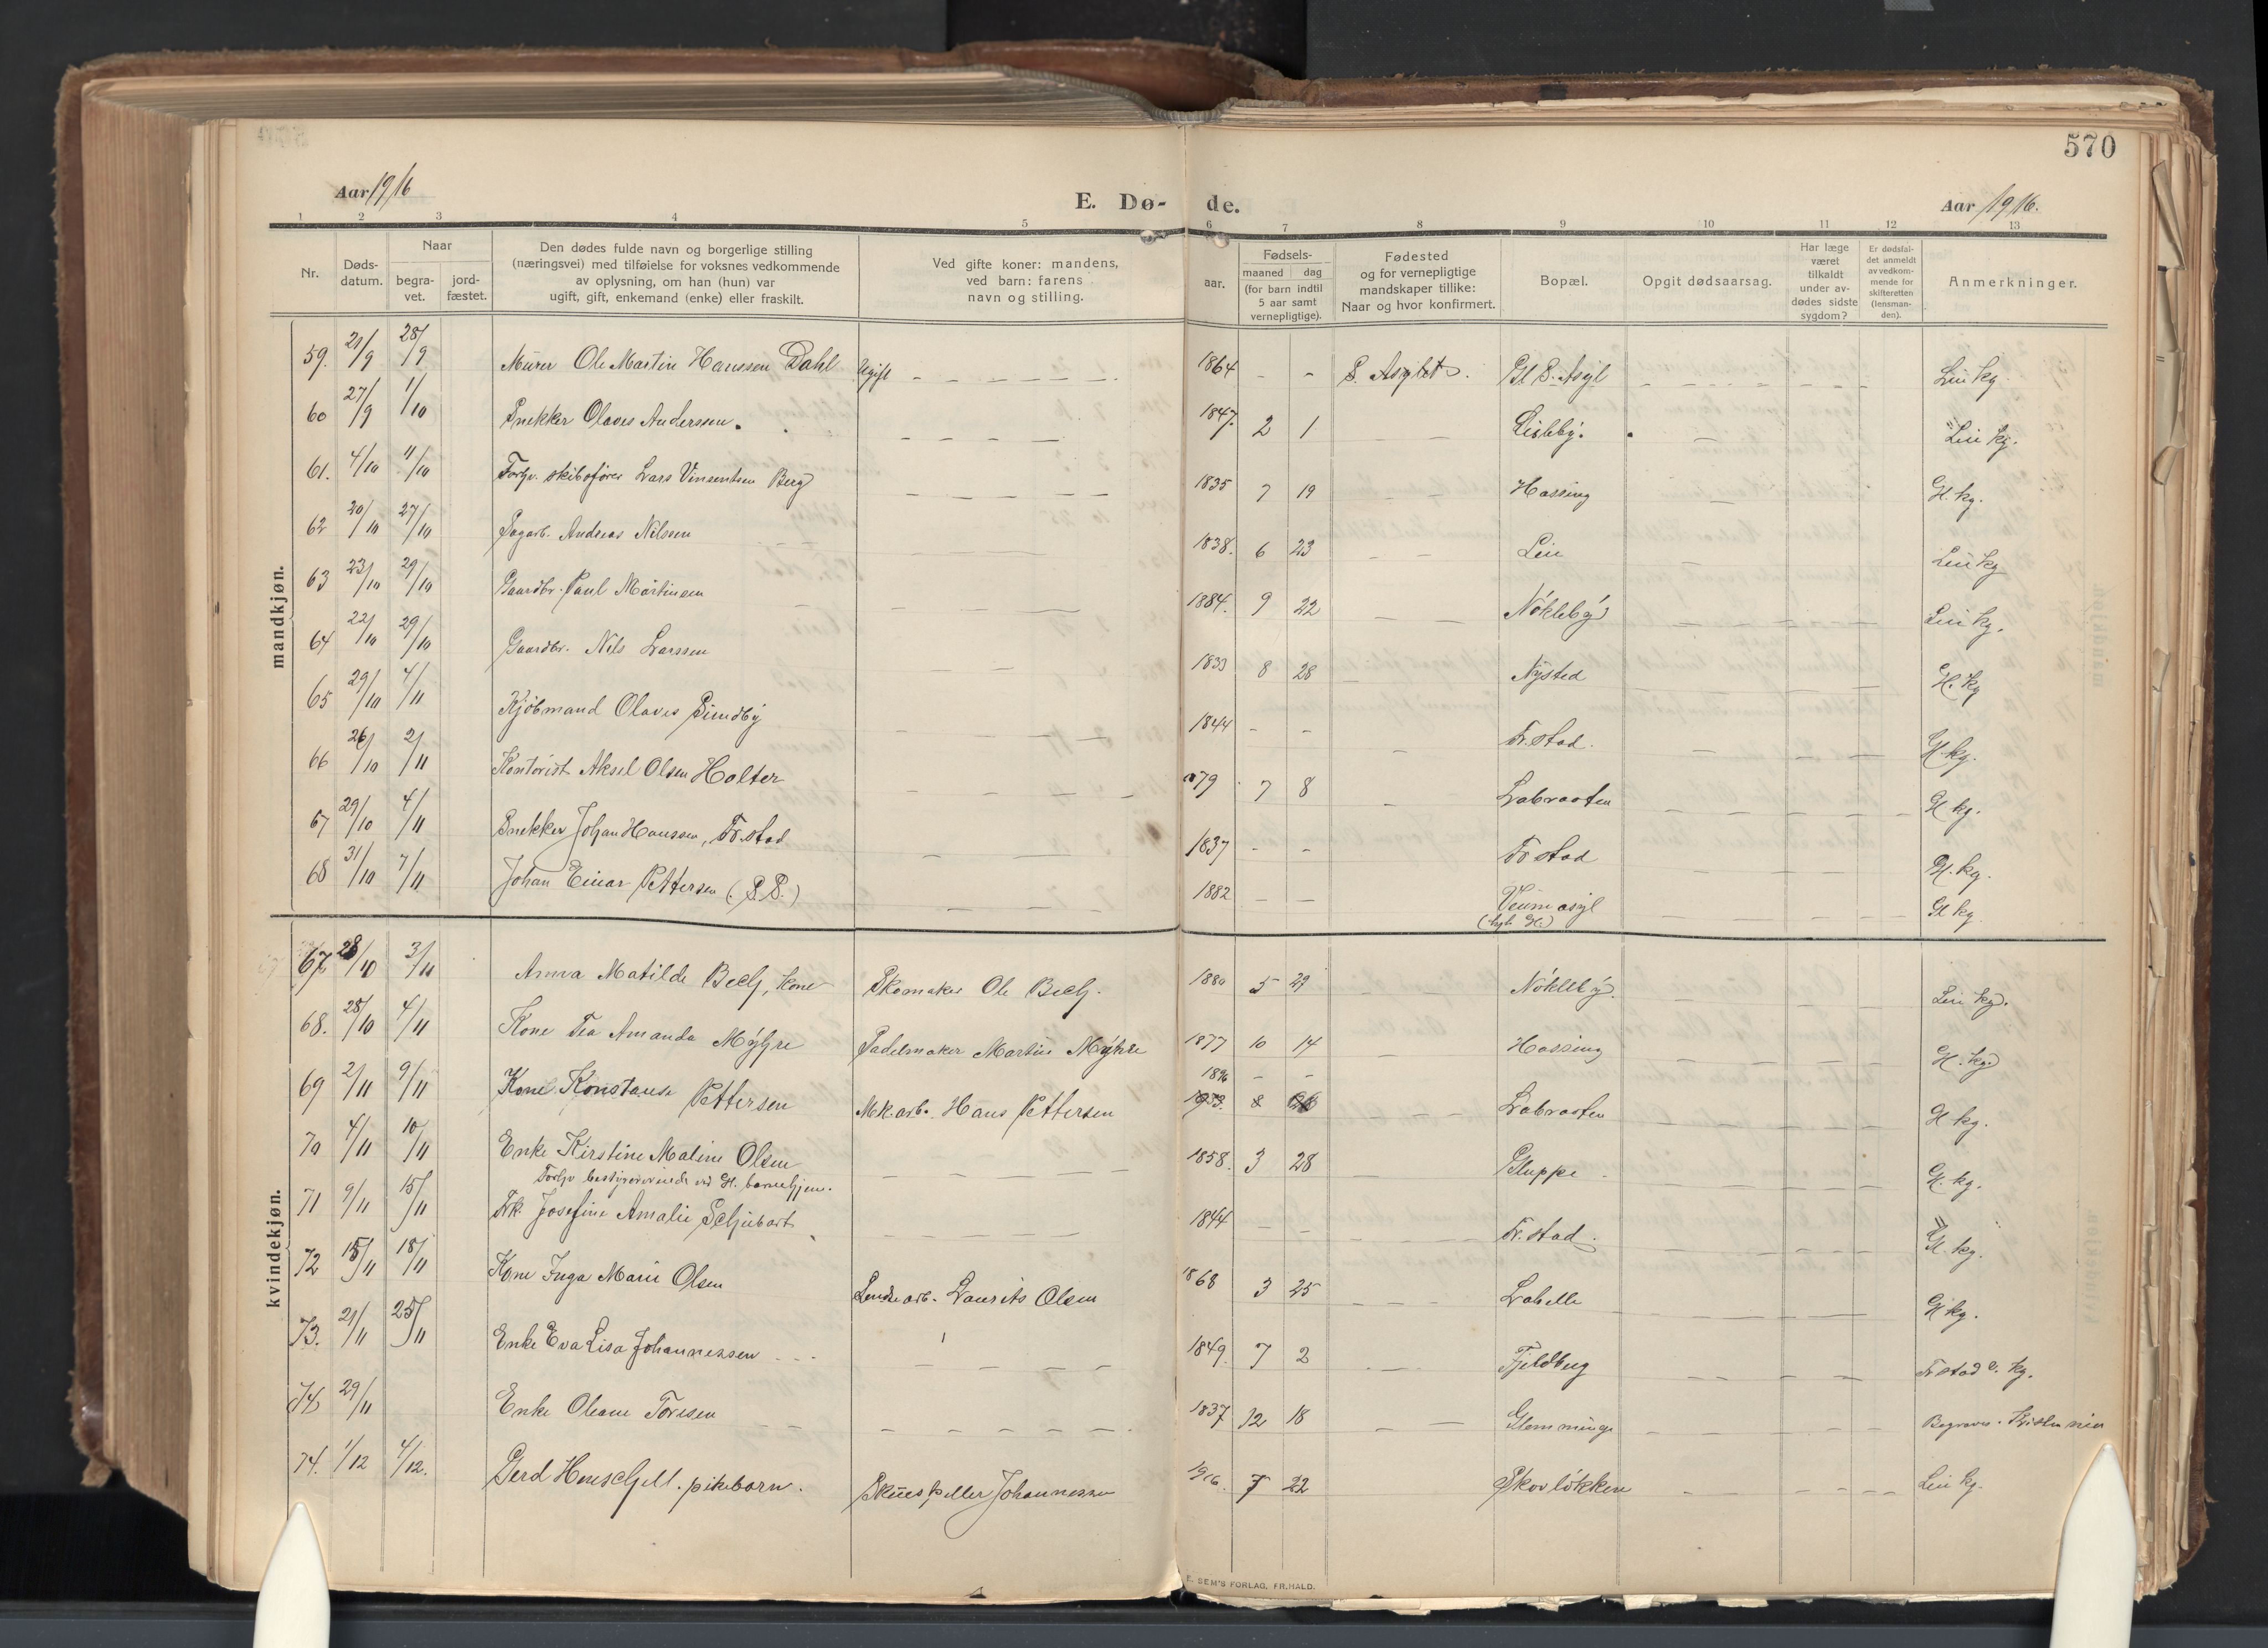 570
Aar 1916
E. Dø- de.
Aar 1916.
1 2 3 4 5 6 7 8 9 10 11 12 13
Nr. Døds-datum. Naar begra-vet. jord-fæstet. Den dødes fulde navn og borgerlige stilling (næringsvei) med tilføielse for voksnes vedkommende av oplysning, om han (hun) var ugift, gift, enkemand (enke) eller fraskilt. Ved gifte koner: mandens, ved barn: farens navn og stilling. Fødsels- aar. maaned dag (for barn indtil 5 aar samt vernepligtige). Fødested og for vernepligtige mandskaper tillike: Naar og hvor konfirmert. Bopæl. Opgit dødsaarsag. Har læge været tilkaldt under av-dødes sidste sygdom? Er dødsfal-det anmeldt av vedkom-mende for skifteretten (lensman-den). Anmerkninger.
mandkjøn.
59. 21/9 28/9 Murer Ole Martin Hanssen Dahl Ugift 1864 - - S. Asylet. Gl S. Asyl Leie kg.
60 27/9 1/10 Snekker Olaves Anderssen. 1847. 2 1 Lisleby. Leie kg.
61. 4/10 11/10 Forhv. skibsfører Lars Vinsentsen Berg 1835 7 19 Hassing Gl. kg.
62 20/10 27/10 Sagarb. Andreas Nilssen 1838. 6 23 Leie Leie kg
63 23/10 29/10 Gaardbr. Paul Martinsen 1884. 9 22 Nökleby Leie kg.
64 22/10 29/10 Gaardbr. Nils Larssen 1833 8 28 Nysted Gl. kg
65 29/10 4/11 Kjøbmand Olaves Sundby 1844 - - Fr.stad. Gl. kg.
66 26/10 2/11 Kontorist Aksel Olsen Holter 79 7 8 Labraaten Gl kg.
67 29/10 4/11 Snekker Johan Hanssen, Fr.stad 1837 - - Fr stad Gl. kg.
68 31/10 7/11 Johan Einar Pettersen (S.S.) 1882 - - Veum asyl Gl kg
kvindekjøn.
67 28/10 3/11 Anna Matilde Bech, kone Skomaker Ole Bech. 1880 5 29 Nökleby. Leie kg.
68. 28/10 4/11 Kone Tea Amanda Myhre Sadelmaker Martin Myhre 1877 10 14 Hassing Gl. kg.
1896 - -
69 2/11 9/11 Kone Konstanse Pettersen Mek.arb. Hans Pettersen 8 Labraaten Gl kg.
70 4/11 10/11 Enke Kirstine Maline Olsen 1858. 3 28 Gluppe Gl. kg.
Forhv bestyrerinde ved Gl. barnehjem.
71 9/11 15/11 Frk. Josefine Amalie Schubart 1844 - - Fr. stad. Gl. kg.
72 15/11 18/11 Kone Inga Marie Olsen Lensearb. Laurits Olsen 1868 3 25 Labelle Gl kg.
73. 21/11 25/11 Enke Eva Lisa Johannessen 1849. 7 2 Fjeldberg Fr stad kg.
74 29/11 Enke Oleane Toresen 1837 12 18 Glemminge Begraves i Kristiania
74. 1/12 4/12. Gerd pikebarn. Skuespiller Johannessen 1916. 7 22 Skovløkken Leie kg.
E. SEM'S FORLAG, FR.HALD.